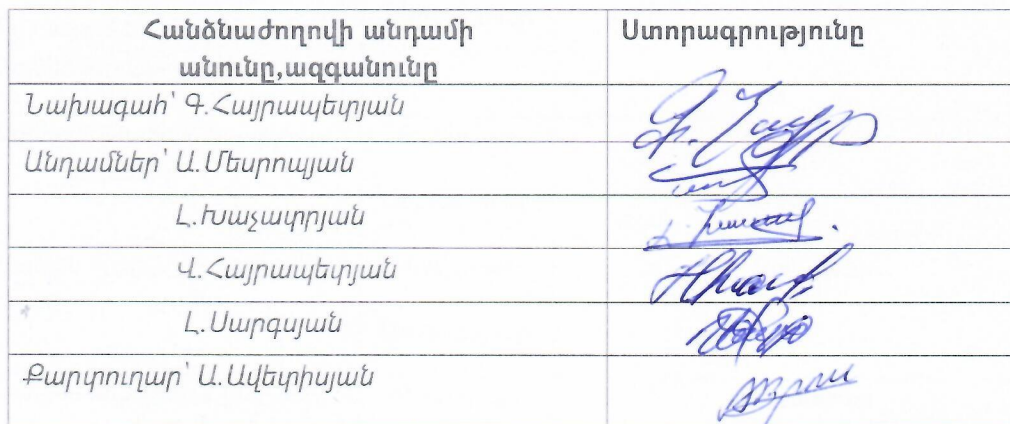 Հանձնաժողովի անդամի Ստորագրությունը
անունը,ազգանունը
Նախագահ՝ Գ.Հայրապետյան
Անդամներ՝ Ա.Մեսրոպյան
Լ.Խաչատրյան
Վ.Հայրապետյան
Լ.Սարգսյան
Քարտուղար՝ Ա.Ավետիսյան